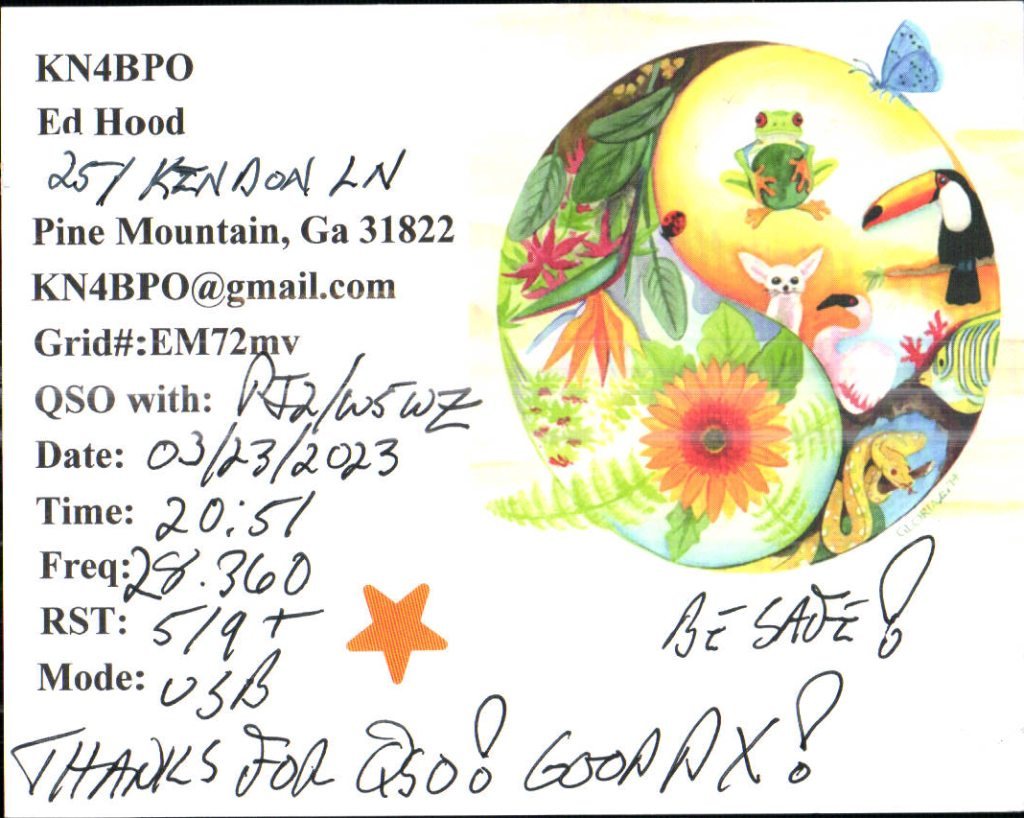 KN4BPO
Ed Hood
251 KENDON LN
Pine Mountain, Ga 31822
KN4BPO@gmail.com
Grid#:EM72mv
QSO with: PJ2/W5WZ
Date: 03/23/2023
Time: 20:51
Freq: 28.360
RST: 5/9+
Mode: USB
BE SAFE!
THANKS FOR QSO! GOOD DX!